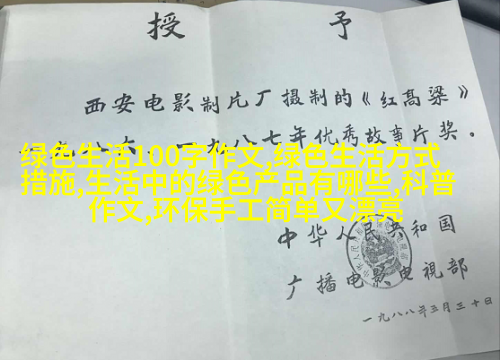 授 予
西安电影制片厂摄制的《红高粱》
一九八六、一九八七年优秀故事片奖。
绿色生活100字作文,绿色生活方式
措施,生活中的绿色产品有哪些,科普
作文,环保手工简单又漂亮
中华人民共和国
广播电影电视部
一九八八年三月三十日